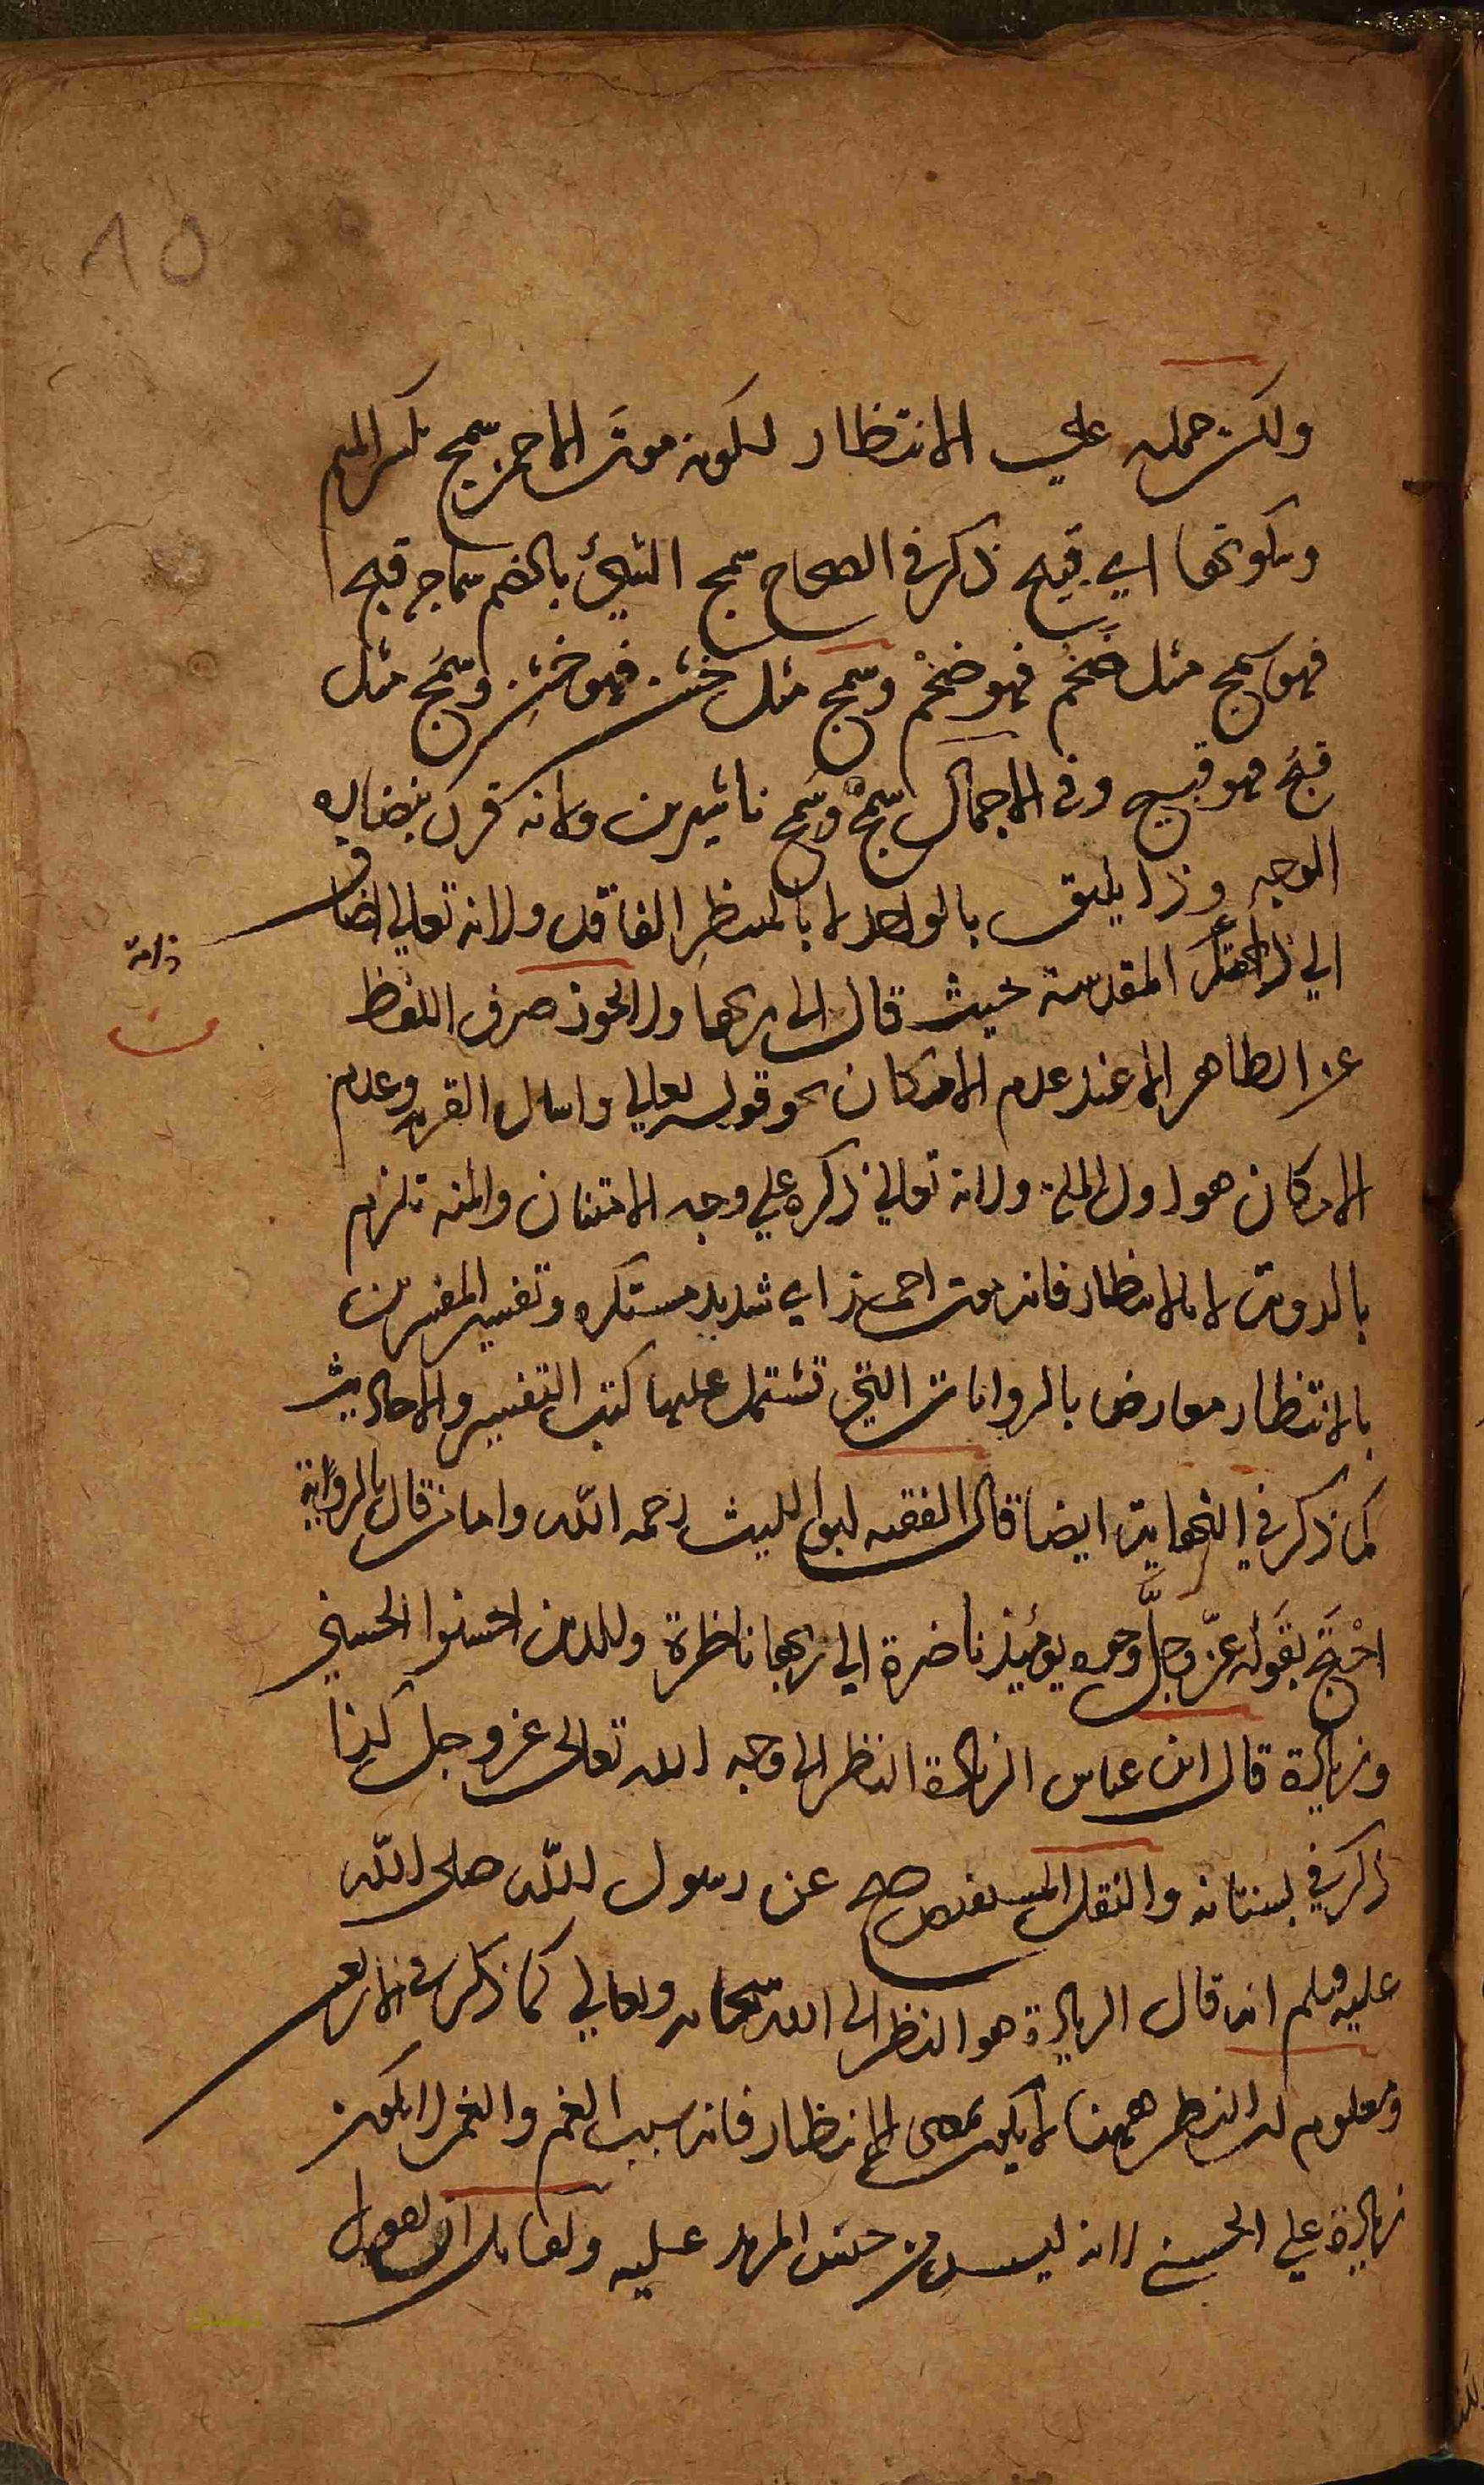 ٨٥
ولكن حمله على الانتظار لكونه موت الاحمر سمج بكسر الميم
وسكونها اي قبيح ذكر في الصحاح سمج الشيئ بالضم سماجة قبح
فهو سمج مثل ضخم فهو ضخم وسمج مثل خشن فهو خشن وسمج مثل
قبح فهو قبيح وفي الاجمال سمج وسمج ولانه قرن بنضارة
الوجه وذا يليق بالواجد لا بالمنتظر الفاقد ولانه تعالى اضاف
الى المقدسة حيث قال الى ربها ولا يجوز صرف اللفظ
ذاته
عن الظاهر الا عند عدم الامكان نحو قوله تعالى واسال القرية وعدم
الامكان هو اول المسئلة ولانه تعالى ذكره على وجه الامتنان والمنة تلزم
بالروية لا بالانتظار فانه موت احمر اي شديد مستكره وتفسير المفسرين
بالانتظار معارض بالروايات التي تشتمل عليها كتب التفسير والاحاديث
كما ذكر في النهاية ايضا قال الفقيه ابو الليث رحمه الله واما من قال بالرواية
احتج بقوله عز وجل وجوه يومئذ ناضرة الى ربها ناظرة وللذين احسنوا الحسنى
وزيادة قال ابن عباس الزيادة النظر الى وجه الله تعالى عز وجل كذا
ذكر في بستانه والنقل المستفيض صح عن رسول الله صلى الله
عليه وسلم انه قال الزيادة هو النظر الى الله سبحانه وتعالى كما ذكر في
ومعلوم ان النظر ههنا لا يكون بمعنى الانتظار فانه سبب الغم والغم لا يكون
زيادة على الحسنى لانه ليس من جنس المزيد عليه ولقائل ان يقول